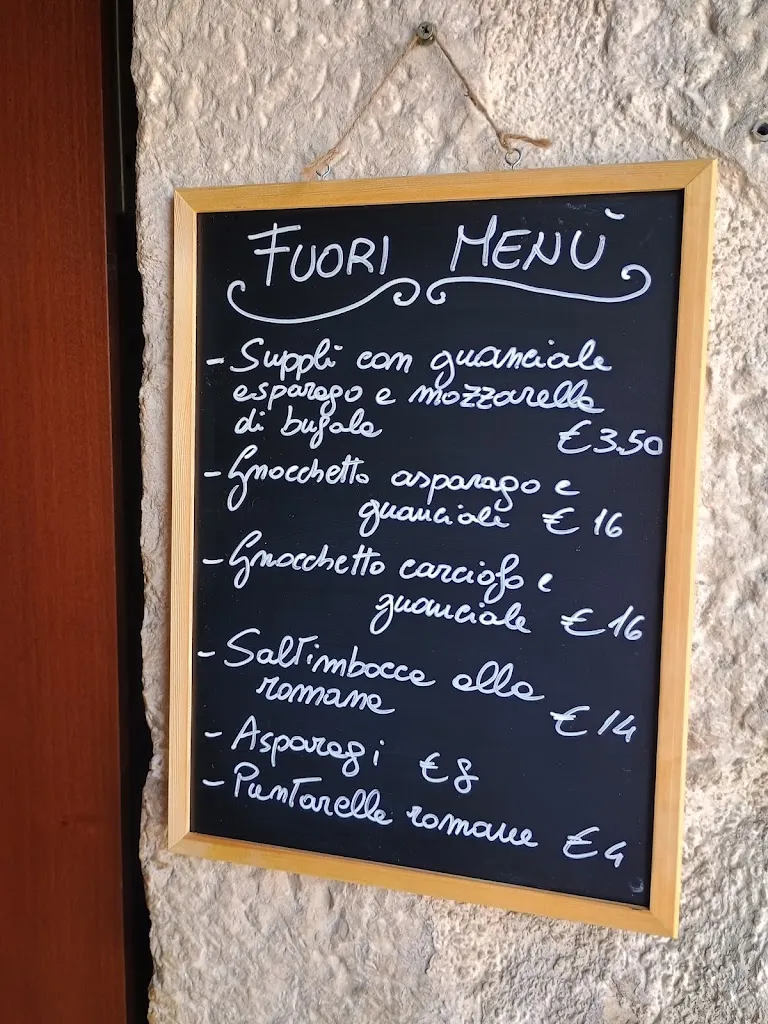 FUORI MENÙ
- Supplì con guanciale
esparago e mozzarella
di bufala
€3.50
- Gnocchetto asparago e
guanciale €16
- Gnocchetto carciofo e
guanciale €16
- Saltimbocca alla
romana
€14
- Asparagi €8
- Puntarelle romane €4